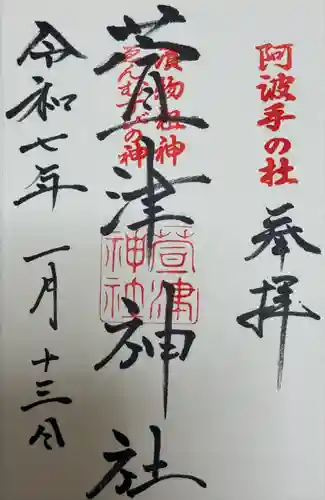 阿波手の杜
奉拝
漬物祖神
えんむすびの神
萱津神社
萱津
神社
令和七年 一月 十三日